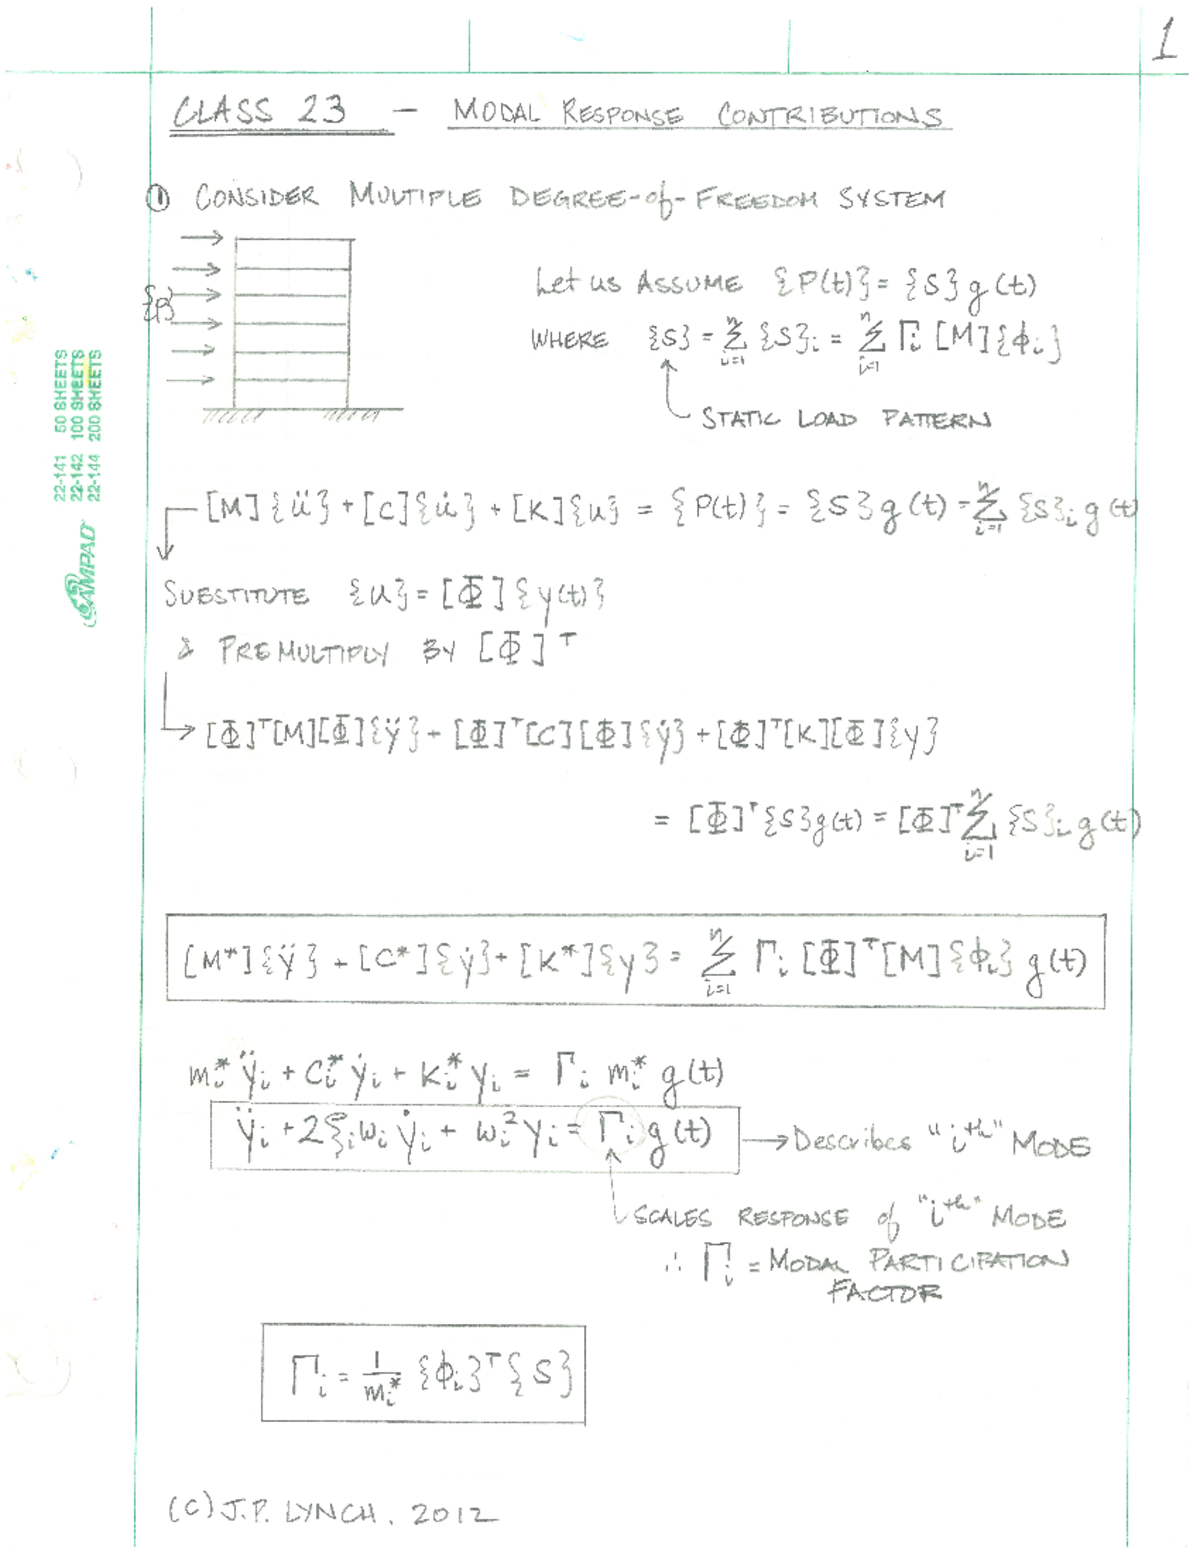 1
CLASS 23 — MODAL RESPONSE CONTRIBUTIONS
① CONSIDER MULTIPLE DEGREE-of-FREEDOM SYSTEM
{P}
Let us ASSUME {P(t)} = {S} g(t)
WHERE {S} = Σ_{i=1}^{n} {S}_i = Σ_{i=1}^{n} Γ_i [M]{ϕ_i}
STATIC LOAD PATTERN
22-141 50 SHEETS
22-142 100 SHEETS
22-144 200 SHEETS
AMPAD
[M]{ü} + [C]{u̇} + [K]{u} = {P(t)} = {S}g(t) = Σ_{i=1}^{n} {S}_i g(t)
SUBSTITUTE {u} = [Φ]{y(t)}
& PREMULTIPLY BY [Φ]^T
[Φ]^T[M][Φ]{ÿ} + [Φ]^T[C][Φ]{ẏ} + [Φ]^T[K][Φ]{y}
= [Φ]^T{S}g(t) = [Φ]^T Σ_{i=1}^{n} {S}_i g(t)
[M*]{ÿ} + [C*]{ẏ} + [K*]{y} = Σ_{i=1}^{n} Γ_i [Φ]^T[M]{ϕ_i} g(t)
m_i* ÿ_i + C_i* ẏ_i + K_i* y_i = Γ_i m_i* g(t)
ÿ_i + 2ξ_i ω_i ẏ_i + ω_i² y_i = Γ_i g(t) → Describes "i^th" MODE
SCALES RESPONSE of "i^th" MODE
∴ Γ_i = MODAL PARTICIPATION
FACTOR
Γ_i = 1/m_i* {ϕ_i}^T{S}
(C) J.P. LYNCH. 2012